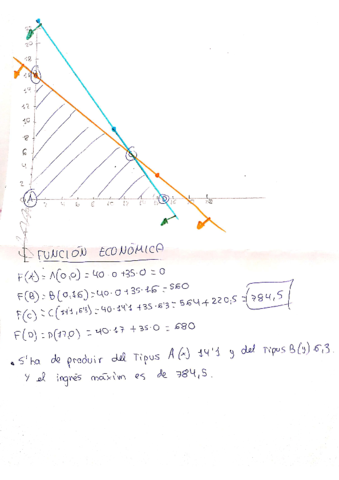 B
C
A
D
FUNCIÓN ECONÒMICA
F(A) = A(0,0) = 40·0 + 35·0 = 0
F(B) = B(0,16) = 40·0 + 35·16 = 560
F(C) = C(14'1, 6'3) = 40·14'1 + 35·6'3 = 564 + 220,5 = 784,5
F(D) = D(17,0) = 40·17 + 35·0 = 680
• S'ha de produir del tipus A(x) 14'1 y del tipus B(y) 6,3.
Y el ingrés màxim es de 784,5.